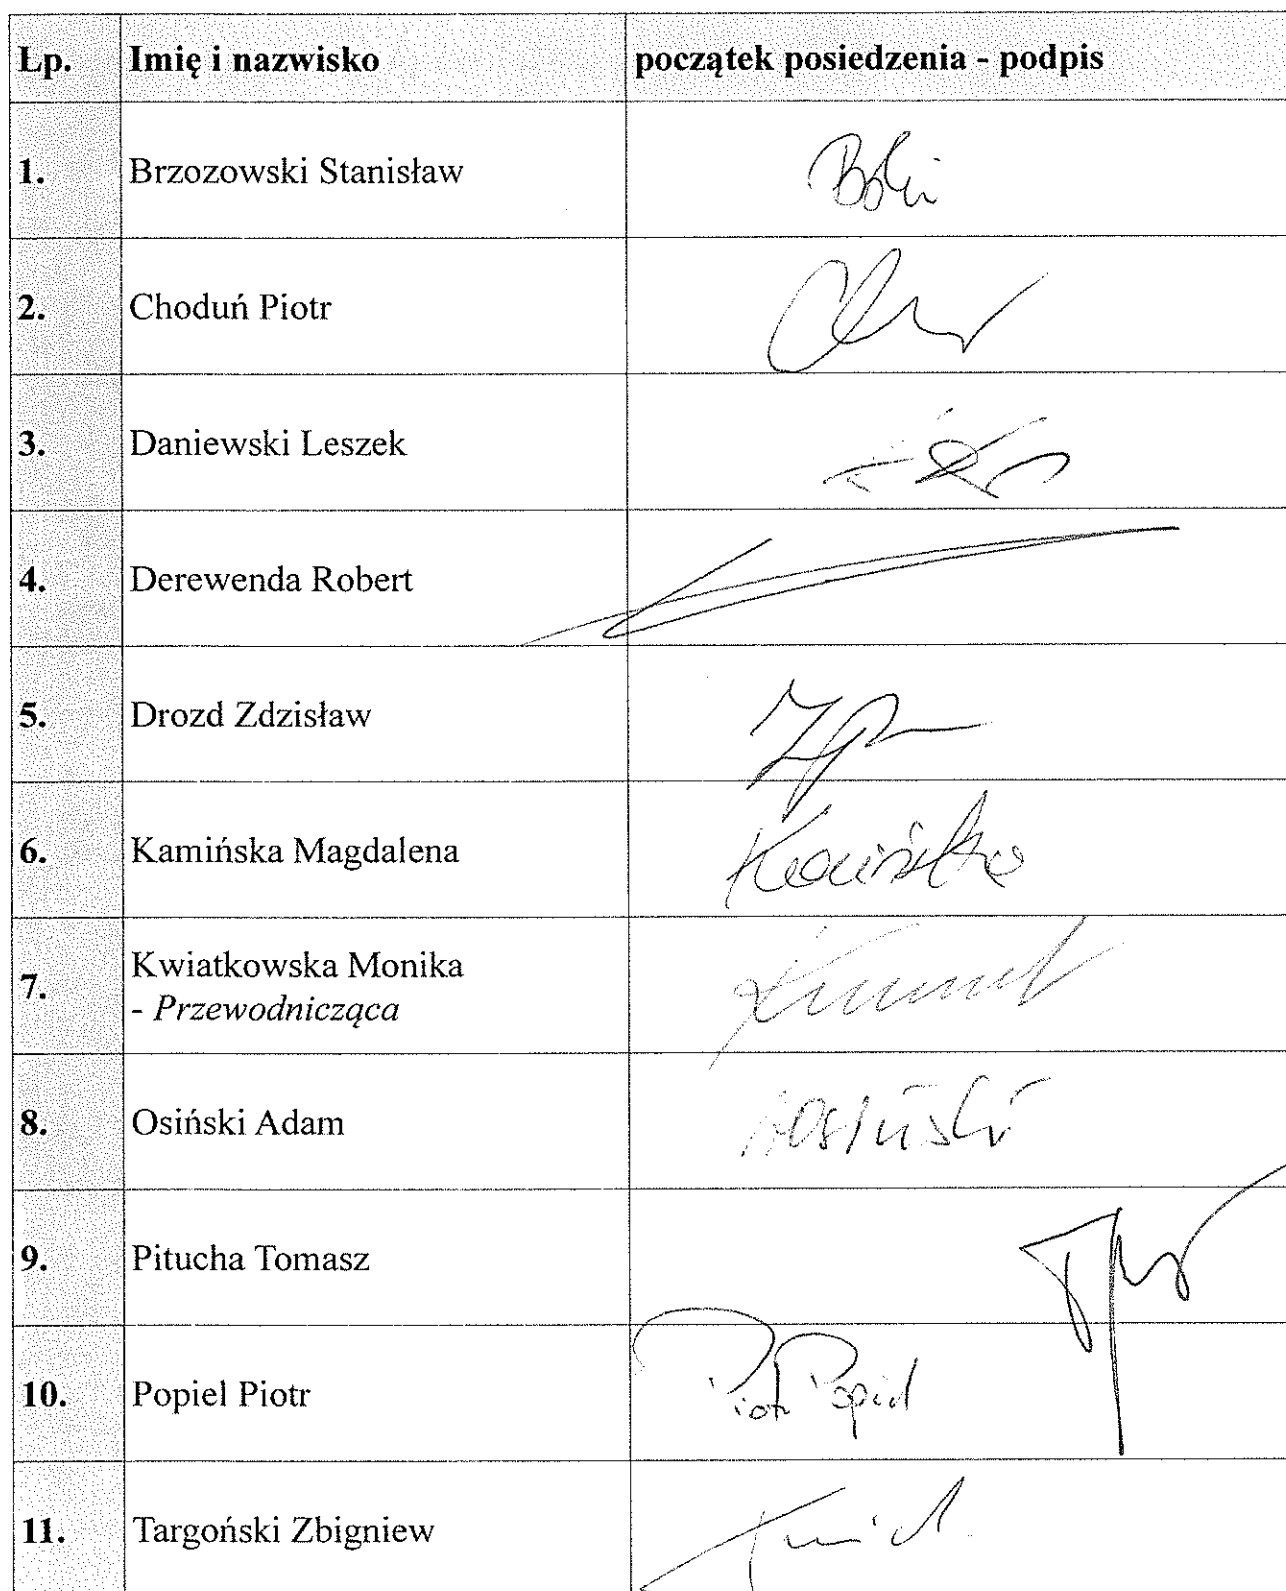 Lp. Imię i nazwisko początek posiedzenia - podpis
1. Brzozowski Stanisław
2. Choduń Piotr
3. Daniewski Leszek
4. Derewenda Robert
5. Drozd Zdzisław
6. Kamińska Magdalena
7. Kwiatkowska Monika
- Przewodnicząca
8. Osiński Adam Osiński
9. Pitucha Tomasz
10. Popiel Piotr Piotr Popiel
11. Targoński Zbigniew